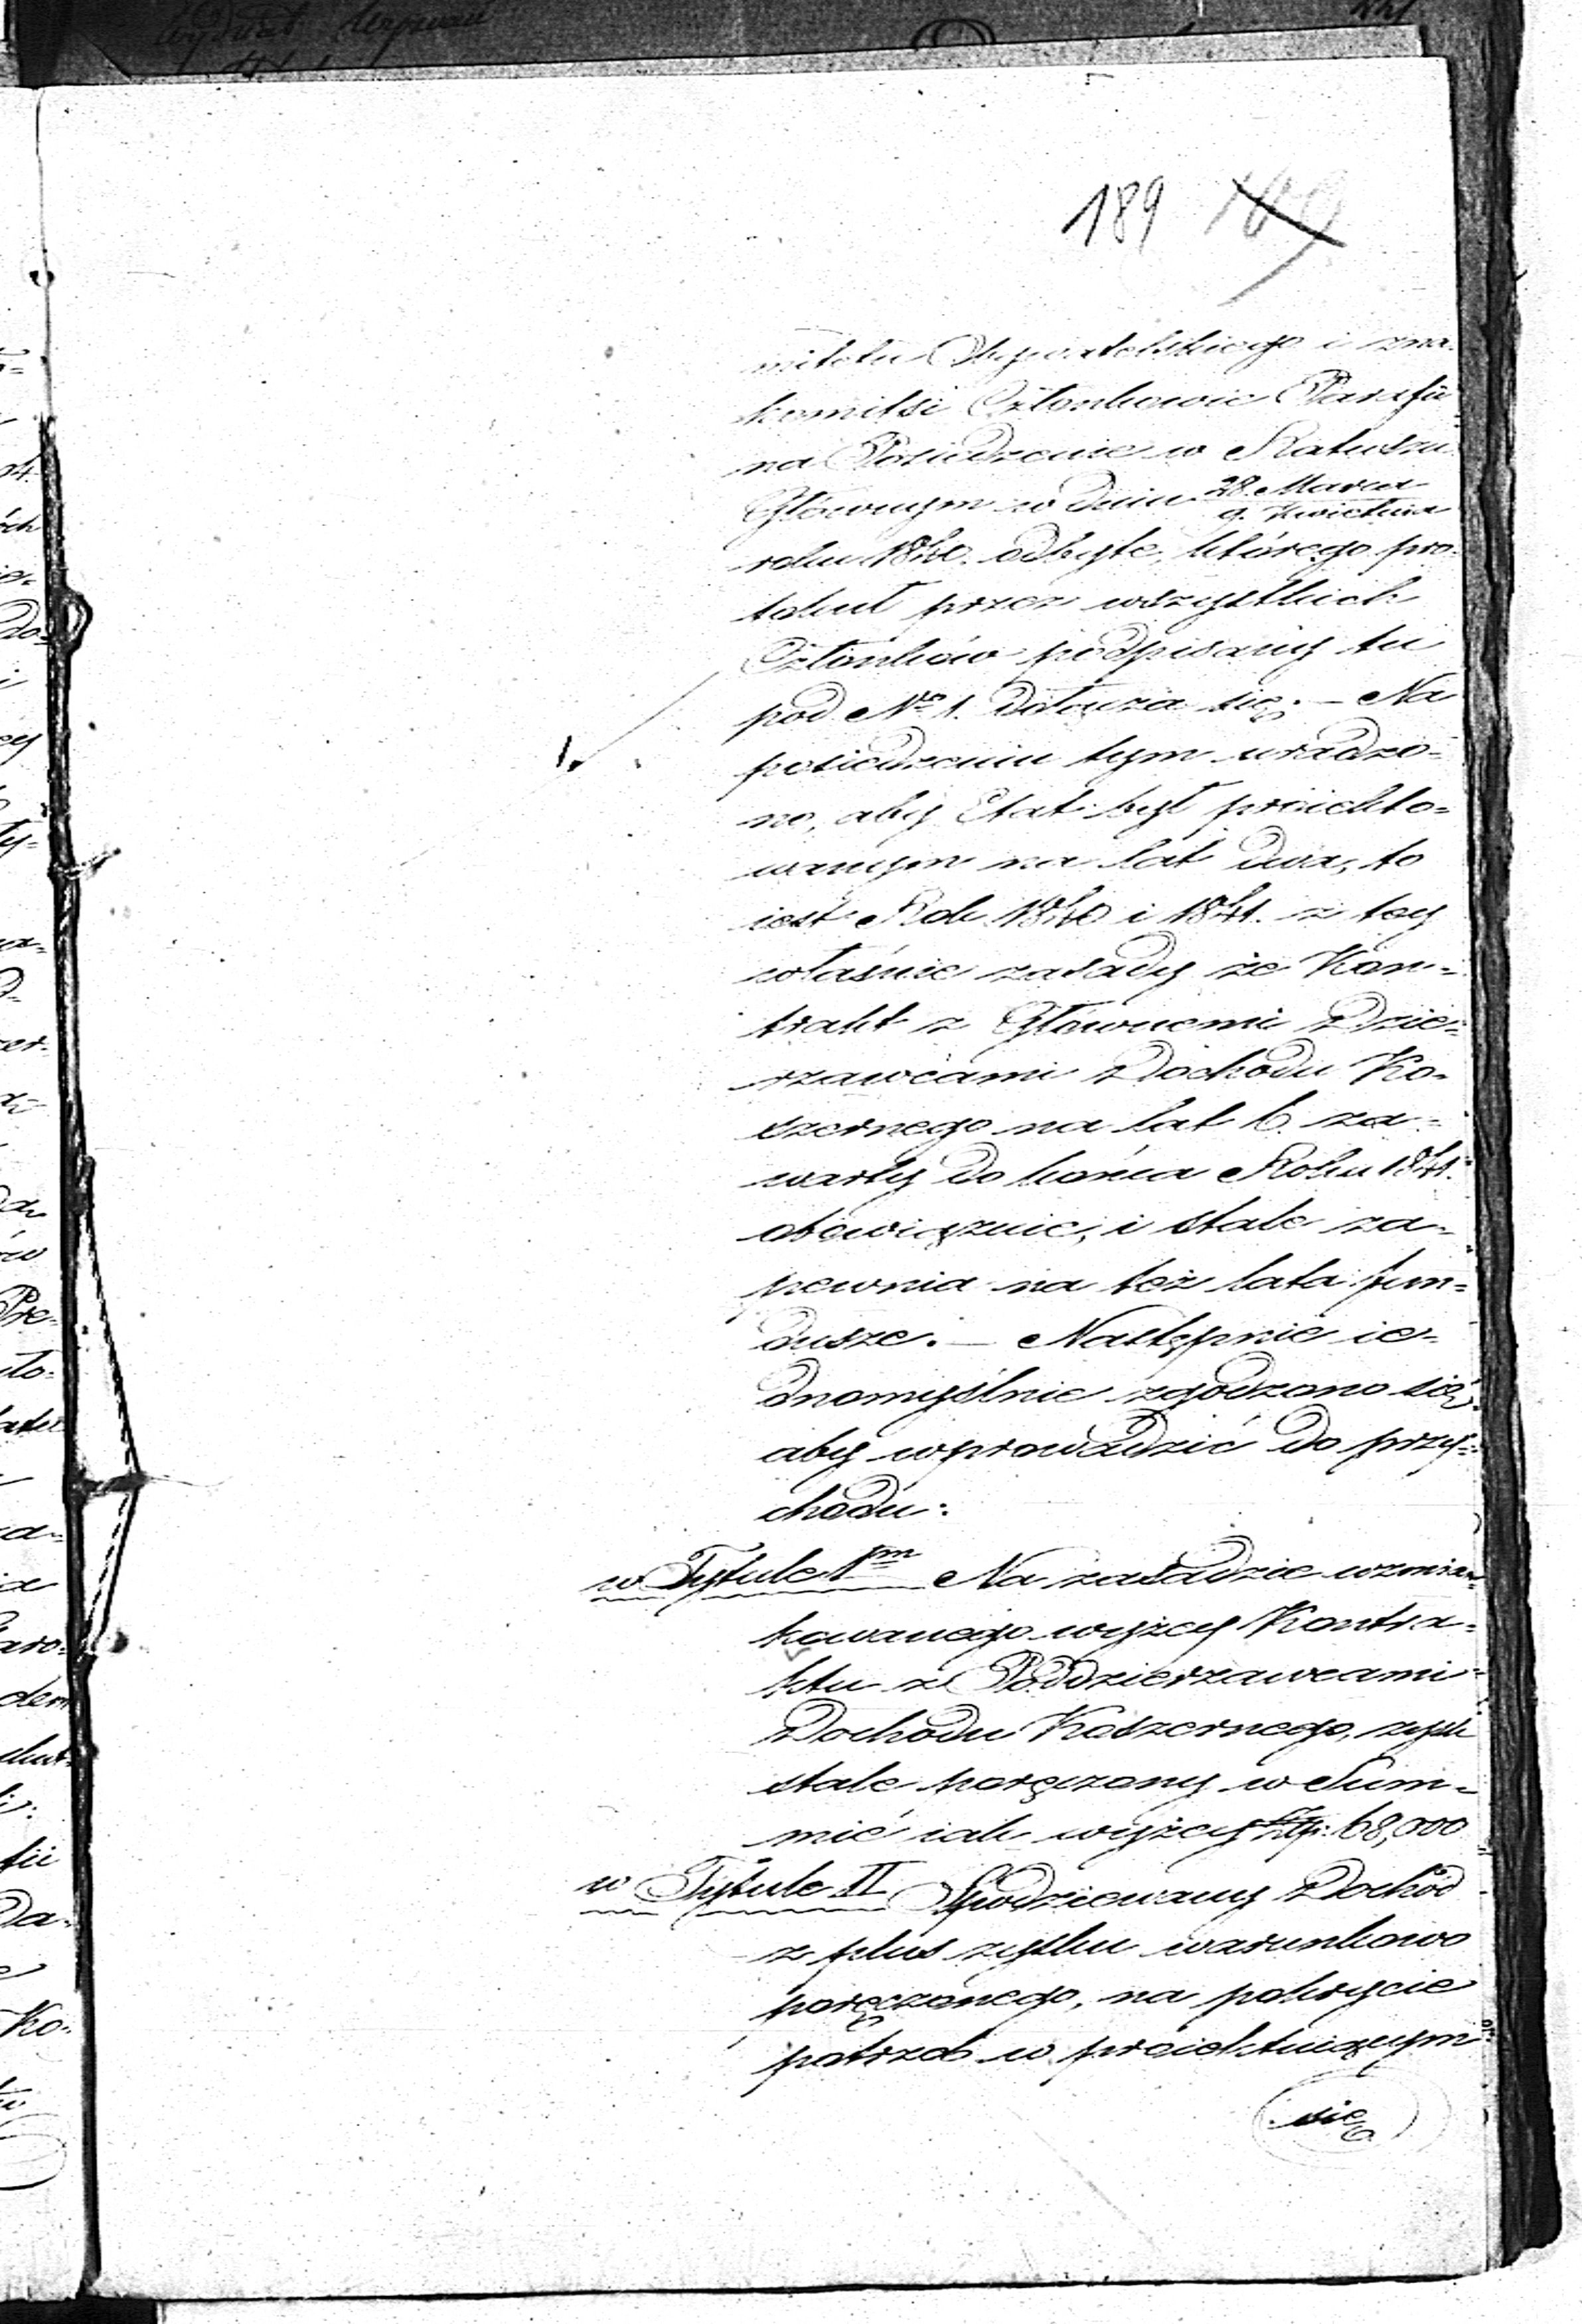 189 169
mitetu Obywatelskiego i zna-
komitsi Członkowie Parafii
na Posiedzenie w Ratuszu
Głównym w dniu 28. Marca
9. Kwietnia
roku 1840. odbyte, którego pro-
tokuł przez wszystkich
Członków podpisany tu
pod Nr 1. dołącza się. — Na
1.
posiedzeniu tym uradzo-
no, aby Etat był proiekto-
wanym na lat dwa, to
iest Rok 1840 i 1841. z tey
właśnie zasady że Kon-
trakt z Głównemi Dzier-
rzawcami Dochodu Ko-
szernego na lat 6. za-
warty do końca Roku 1841.
obowiązuie, i stale za-
pewnia na też lata fun-
dusze. — Następnie ie-
dnomyślnie zgodzono się,
aby wprowadzić do przy-
chodu:
w Tytule 1m Na zasadzie wzmian-
kowanego wyżey Kontra-
ktu z Poddzierzawcami
Dochodu Koszernego, zysk
stale poręczony w Sum-
mie iak wyżey Złp: 68,000
w Tytule II Spodziewany Dochód
z plus zysku warunkowo
poręczonego, na pokrycie
potrzeb w proiektuiącym
się